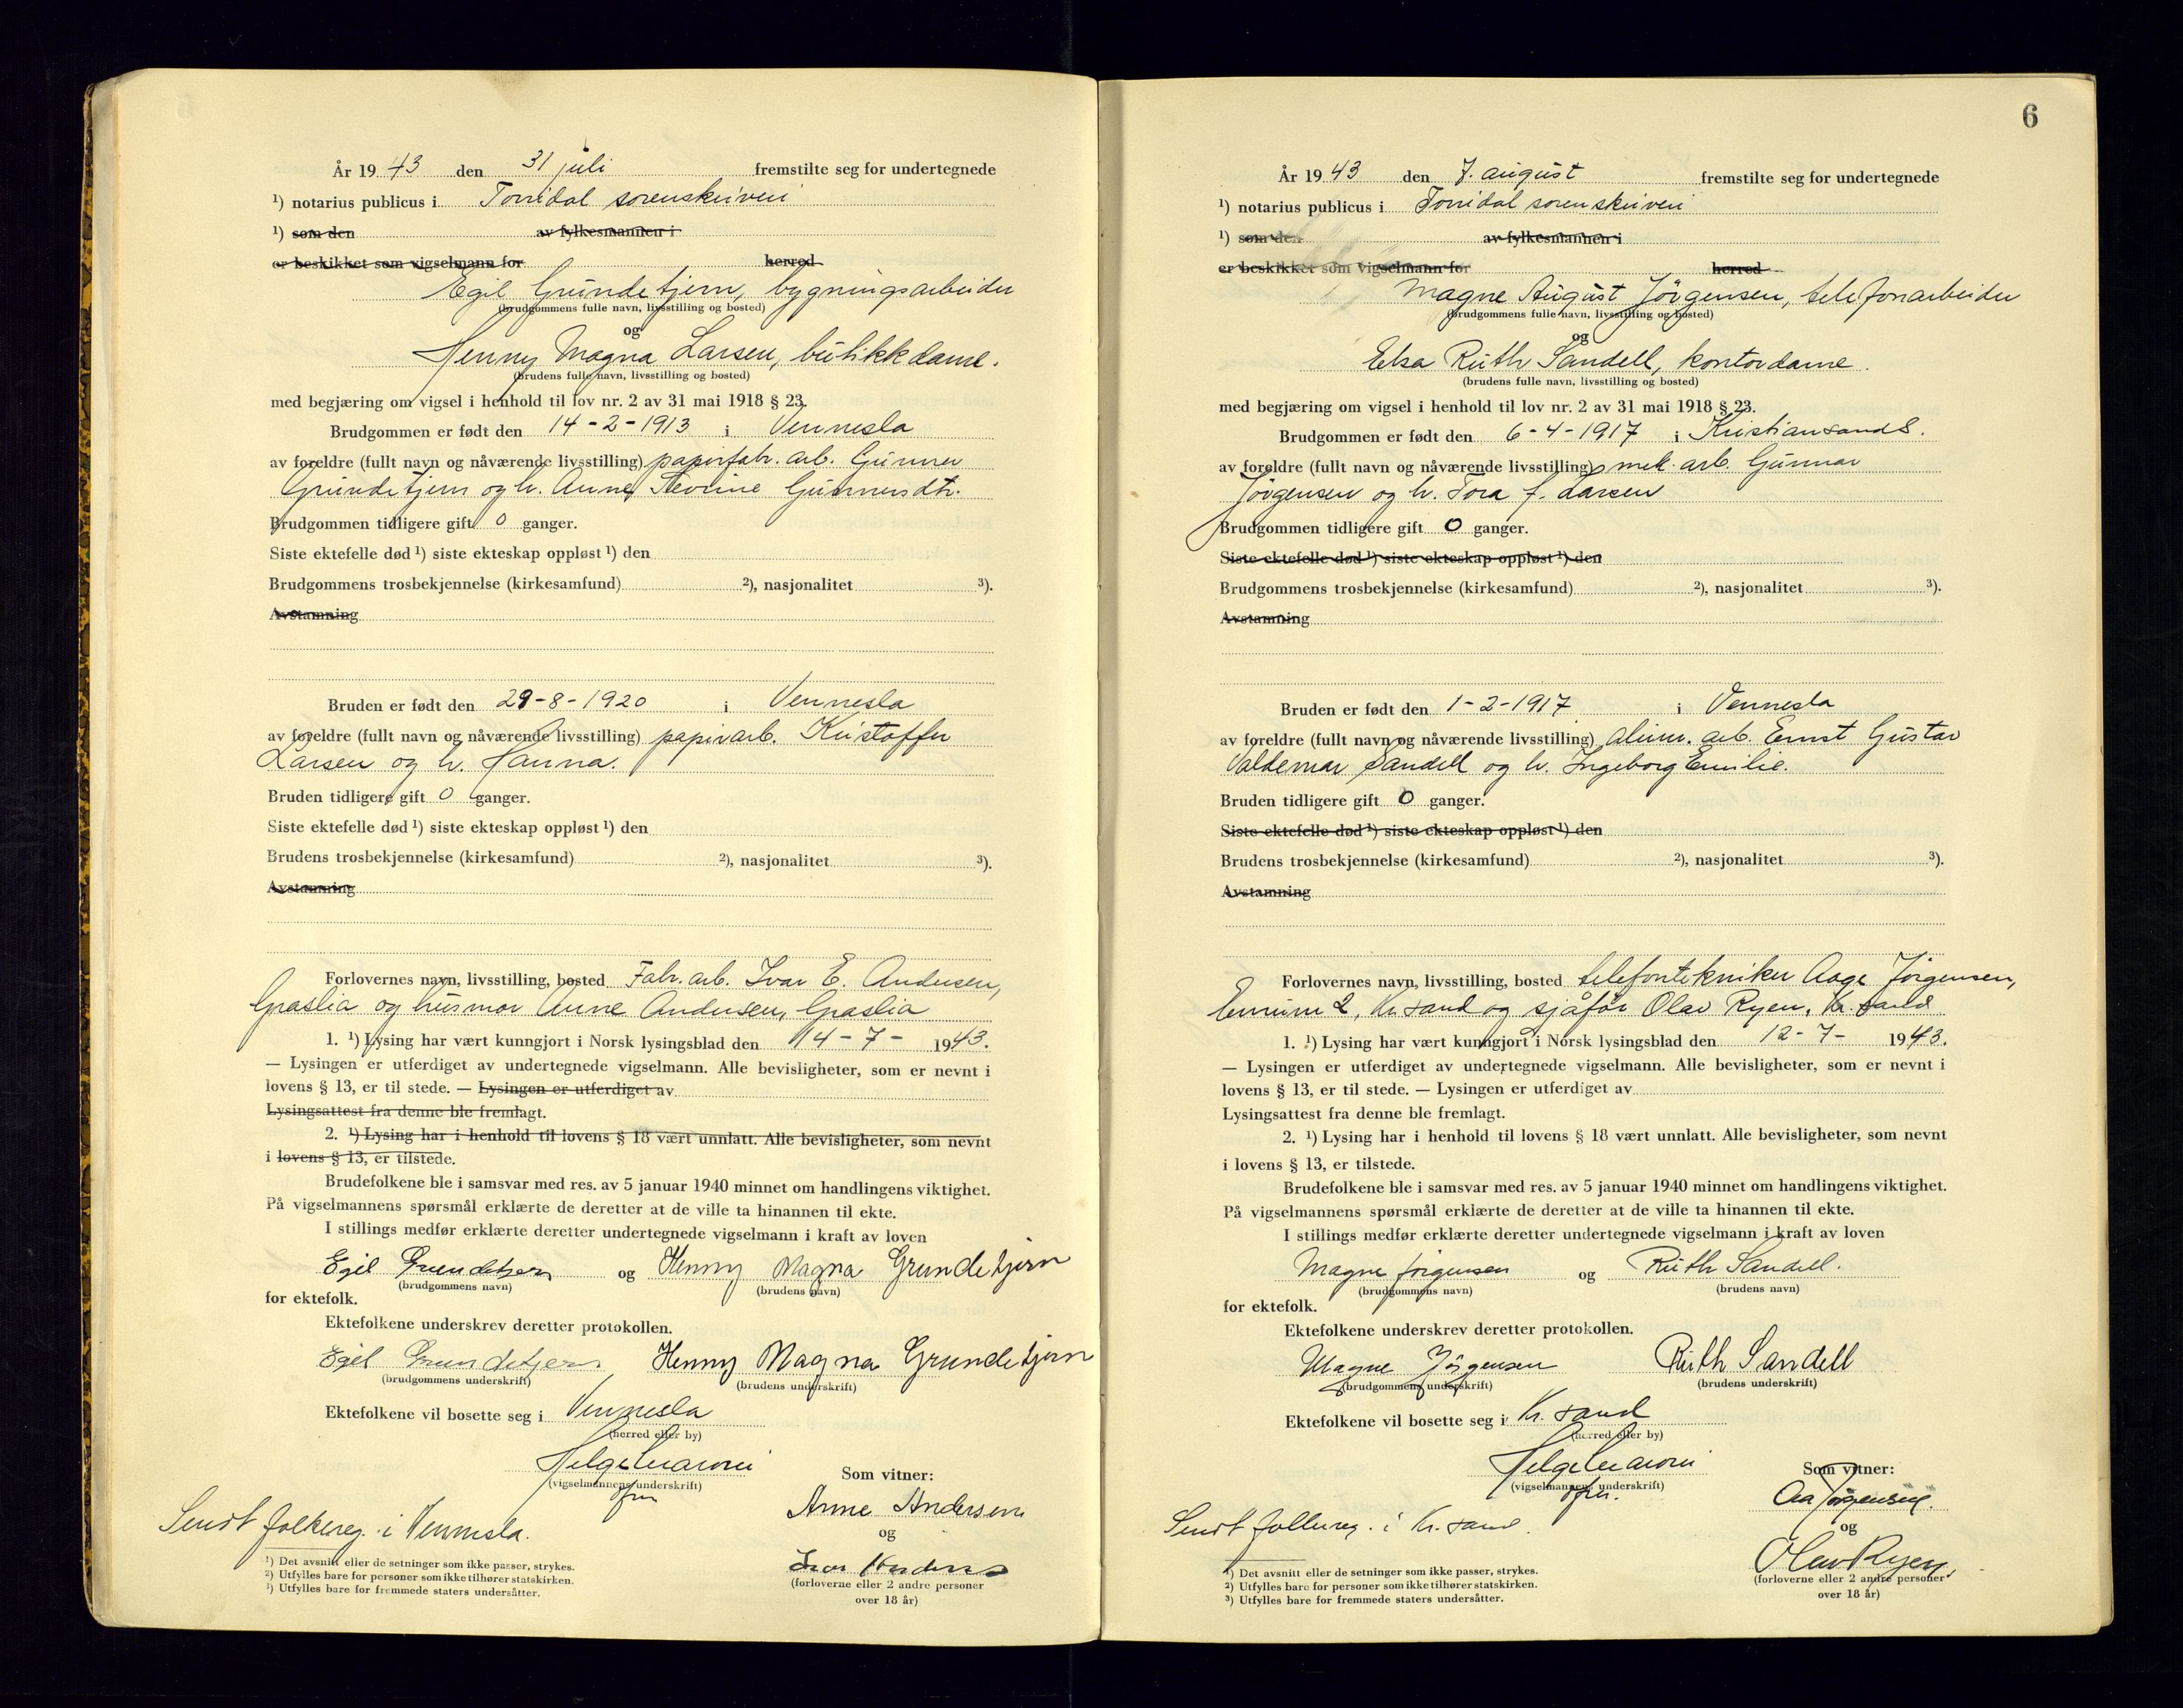 År 19 43 den 31 juli fremstilte seg for undertegnede
¹) notarius publicus i Torridal sorenskriveri
¹) som den av fylkesmannen i
er beskikket som vigselmann for herred
Egil Grundetjern, bygningsarbeider
(brudgommens fulle navn, livsstilling og bosted)
og
Henny Magna Larsen, butikkdame.
(brudens fulle navn, livsstilling og bosted)
med begjæring om vigsel i henhold til lov nr. 2 av 31 mai 1918 § 23.
Brudgommen er født den 14-2-1913 i Vennesla
av foreldre (fullt navn og nåværende livsstilling) papirfabr. arb. Gunner
Grundetjern og h. Anne Severine Gunnersdtr.
Brudgommen tidligere gift 0 ganger.
Siste ektefelle død ¹) siste ekteskap oppløst ¹) den
Brudgommens trosbekjennelse (kirkesamfund) ²), nasjonalitet ³).
Avstamning
Bruden er født den 29-8-1920 i Vennesla
av foreldre (fullt navn og nåværende livsstilling) papirarb. Kristoffer
Larsen og h. Hanna.
Bruden tidligere gift 0 ganger.
Siste ektefelle død ¹) siste ekteskap oppløst ¹) den
Brudens trosbekjennelse (kirkesamfund) ²), nasjonalitet ³).
Avstamning
Forlovernes navn, livsstilling, bosted Fabr. arb. Ivar E. Andersen,
Graslia og husmor Anne Andersen, Graslia
1. ¹) Lysing har vært kunngjort i Norsk lysingsblad den 14-7- 1943.
— Lysingen er utferdiget av undertegnede vigselmann. Alle bevisligheter, som er nevnt i
lovens § 13, er til stede. — Lysingen er utferdiget av
Lysingsattest fra denne ble fremlagt.
2. ¹) Lysing har i henhold til lovens § 18 vært unnlatt. Alle bevisligheter, som nevnt
i lovens § 13, er tilstede.
Brudefolkene ble i samsvar med res. av 5 januar 1940 minnet om handlingens viktighet.
På vigselmannens spørsmål erklærte de deretter at de ville ta hinannen til ekte.
I stillings medfør erklærte deretter undertegnede vigselmann i kraft av loven
Egil Grundetjern og Henny Magna Grundetjern
(brudgommens navn) (brudens navn)
for ektefolk.
Ektefolkene underskrev deretter protokollen.
Egil Grundetjern Henny Magna Grundetjern
(brudgommens underskrift) (brudens underskrift)
Ektefolkene vil bosette seg i Vennesla
(herred eller by)
Helge
(vigselmannens underskrift)
Som vitner:
Anne Andersen
og
Ivar Andersen
(forloverne eller 2 andre personer
over 18 år)
Sendt folkereg. i Vennesla.
¹) Det avsnitt eller de setninger som ikke passer, strykes.
²) Utfylles bare for personer som ikke tilhører statskirken.
³) Utfylles bare for fremmede staters undersåtter.
6
År 19 43 den 7. august fremstilte seg for undertegnede
¹) notarius publicus i Torridal sorenskriveri
¹) som den av fylkesmannen i
er beskikket som vigselmann for herred
Magne August Jörgensen, telefonarbeider
(brudgommens fulle navn, livsstilling og bosted)
og
Elsa Ruth Sandell, kontordame.
(brudens fulle navn, livsstilling og bosted)
med begjæring om vigsel i henhold til lov nr. 2 av 31 mai 1918 § 23.
Brudgommen er født den 6-4-1917 i Kristiansand S.
av foreldre (fullt navn og nåværende livsstilling) mek. arb. Gunnar
Jörgensen og h. Tora f. Larsen
Brudgommen tidligere gift 0 ganger.
Siste ektefelle død ¹) siste ekteskap oppløst ¹) den
Brudgommens trosbekjennelse (kirkesamfund) ²), nasjonalitet ³).
Avstamning
Bruden er født den 1-2-1917 i Vennesla
av foreldre (fullt navn og nåværende livsstilling) alum. arb. Ernst Gustav
Valdemar Sandell og h. Ingeborg Emilie.
Bruden tidligere gift 0 ganger.
Siste ektefelle død ¹) siste ekteskap oppløst ¹) den
Brudens trosbekjennelse (kirkesamfund) ²), nasjonalitet ³).
Avstamning
Forlovernes navn, livsstilling, bosted telefontekniker Aage Jörgensen,
Kr. sand og sjåför Olav Ryen, Kr. sand
1. ¹) Lysing har vært kunngjort i Norsk lysingsblad den 12-7- 1943.
— Lysingen er utferdiget av undertegnede vigselmann. Alle bevisligheter, som er nevnt i
lovens § 13, er til stede. — Lysingen er utferdiget av
Lysingsattest fra denne ble fremlagt.
2. ¹) Lysing har i henhold til lovens § 18 vært unnlatt. Alle bevisligheter, som nevnt
i lovens § 13, er tilstede.
Brudefolkene ble i samsvar med res. av 5 januar 1940 minnet om handlingens viktighet.
På vigselmannens spørsmål erklærte de deretter at de ville ta hinannen til ekte.
I stillings medfør erklærte deretter undertegnede vigselmann i kraft av loven
Magne Jörgensen og Ruth Sandell.
(brudgommens navn) (brudens navn)
for ektefolk.
Ektefolkene underskrev deretter protokollen.
Magne Jörgensen Ruth Sandell
(brudgommens underskrift) (brudens underskrift)
Ektefolkene vil bosette seg i Kr. sand
(herred eller by)
Helge
(vigselmannens underskrift)
Som vitner:
Aa Jörgensen.
og
Olav Ryen.
(forloverne eller 2 andre personer
over 18 år)
Sendt folkereg. i Kr. sand.
¹) Det avsnitt eller de setninger som ikke passer, strykes.
²) Utfylles bare for personer som ikke tilhører statskirken.
³) Utfylles bare for fremmede staters undersåtter.